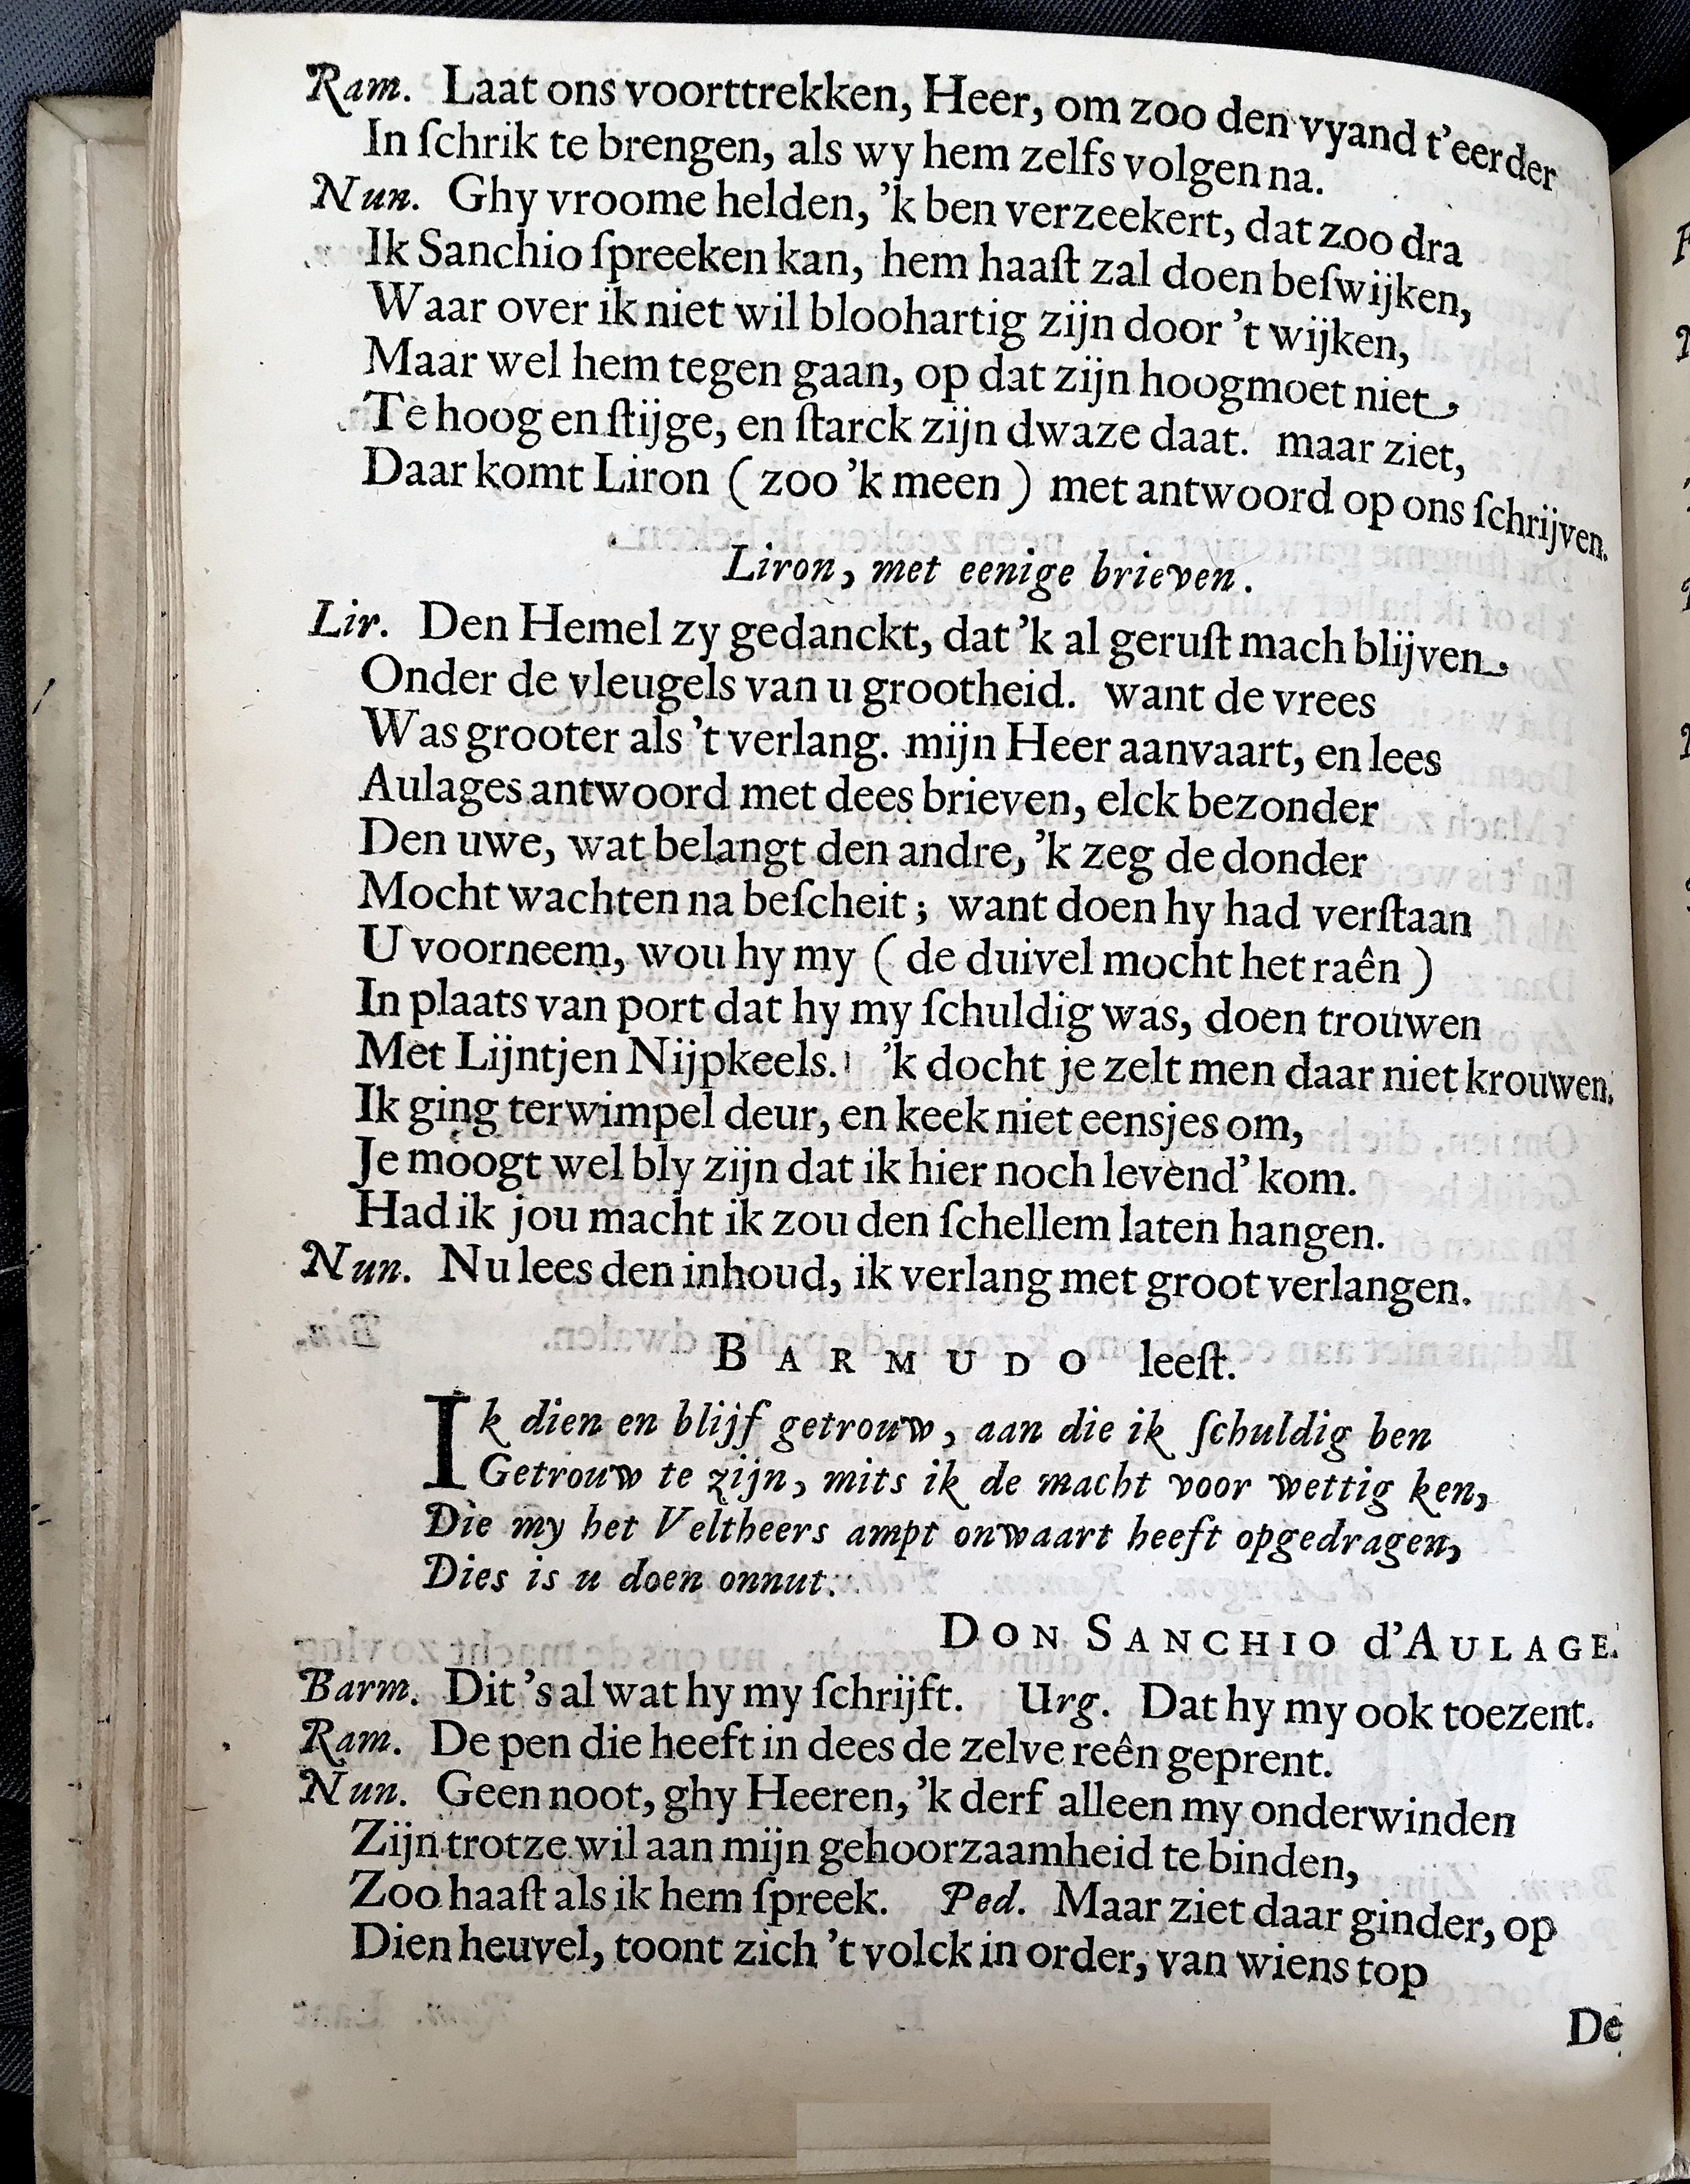 Ram. Laat ons voorttrekken, Heer, om zoo den vyand t'eerder
In ſchrik te brengen, als wy hem zelfs volgen na.
Nun. Ghy vroome helden, 'k ben verzeekert, dat zoo dra
Ik Sanchio ſpreeken kan, hem haaſt zal doen beſwijken,
Waar over ik niet wil bloohartig zijn door 't wijken,
Maar wel hem tegen gaan, op dat zijn hoogmoet niet,
Te hoog en ſtijge, en ſtarck zijn dwaze daat. maar ziet,
Daar komt Liron ( zoo 'k meen ) met antwoord op ons ſchrijven.
Liron, met eenige brieven.
Lir. Den Hemel zy gedanckt, dat 'k al geruſt mach blijven,
Onder de vleugels van u grootheid. want de vrees
Was grooter als 't verlang. mijn Heer aanvaart, en lees
Aulages antwoord met dees brieven, elck bezonder
Den uwe, wat belangt den andre, 'k zeg de donder
Mocht wachten na beſcheit ; want doen hy had verſtaan
U voorneem, wou hy my ( de duivel mocht het raên )
In plaats van port dat hy my ſchuldig was, doen trouwen
Met Lijntjen Nijpkeels. 'k docht je zelt men daar niet krouwen.
Ik ging ter wimpel deur, en keek niet eensjes om,
Je moogt wel bly zijn dat ik hier noch levend' kom.
Had ik jou macht ik zou den ſchellem laten hangen.
Nun. Nu lees den inhoud, ik verlang met groot verlangen.
BARMUDO leeſt.
Ik dien en blijf getrouw, aan die ik ſchuldig ben
Getrouw te zijn, mits ik de macht voor wettig ken,
Die my het Veltheers ampt onwaart heeft opgedragen,
Dies is u doen onnut.
DON SANCHIO d'AULAGE.
Barm. Dit 's al wat hy my ſchrijft. Urg. Dat hy my ook toezent.
Ram. De pen die heeft in dees de zelve reên geprent.
Nun. Geen noot, ghy Heeren, 'k derf alleen my onderwinden
Zijn trotze wil aan mijn gehoorzaamheid te binden,
Zoo haaſt als ik hem ſpreek. Ped. Maar ziet daar ginder, op
Dien heuvel, toont zich 't volck in order, van wiens top
De